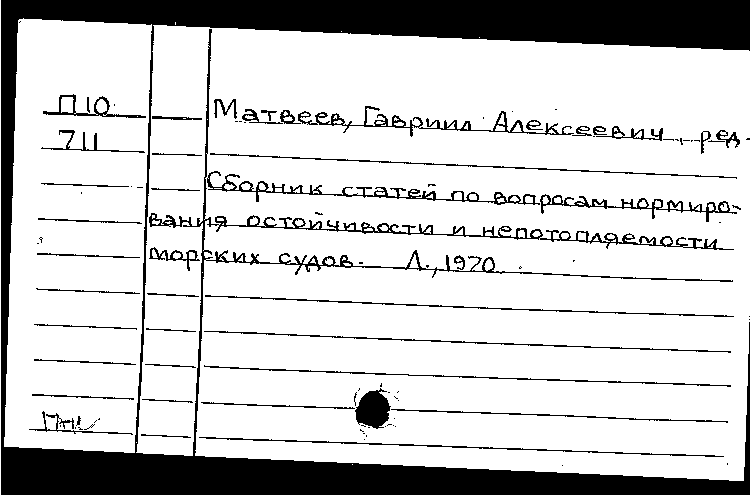 П10
Матвеев, Гавриил Алексеевич, ред.
711
Сборник статей по вопросам нормиро-
вания остойчивости и непотопляемости
морских судов. Л., 1970.